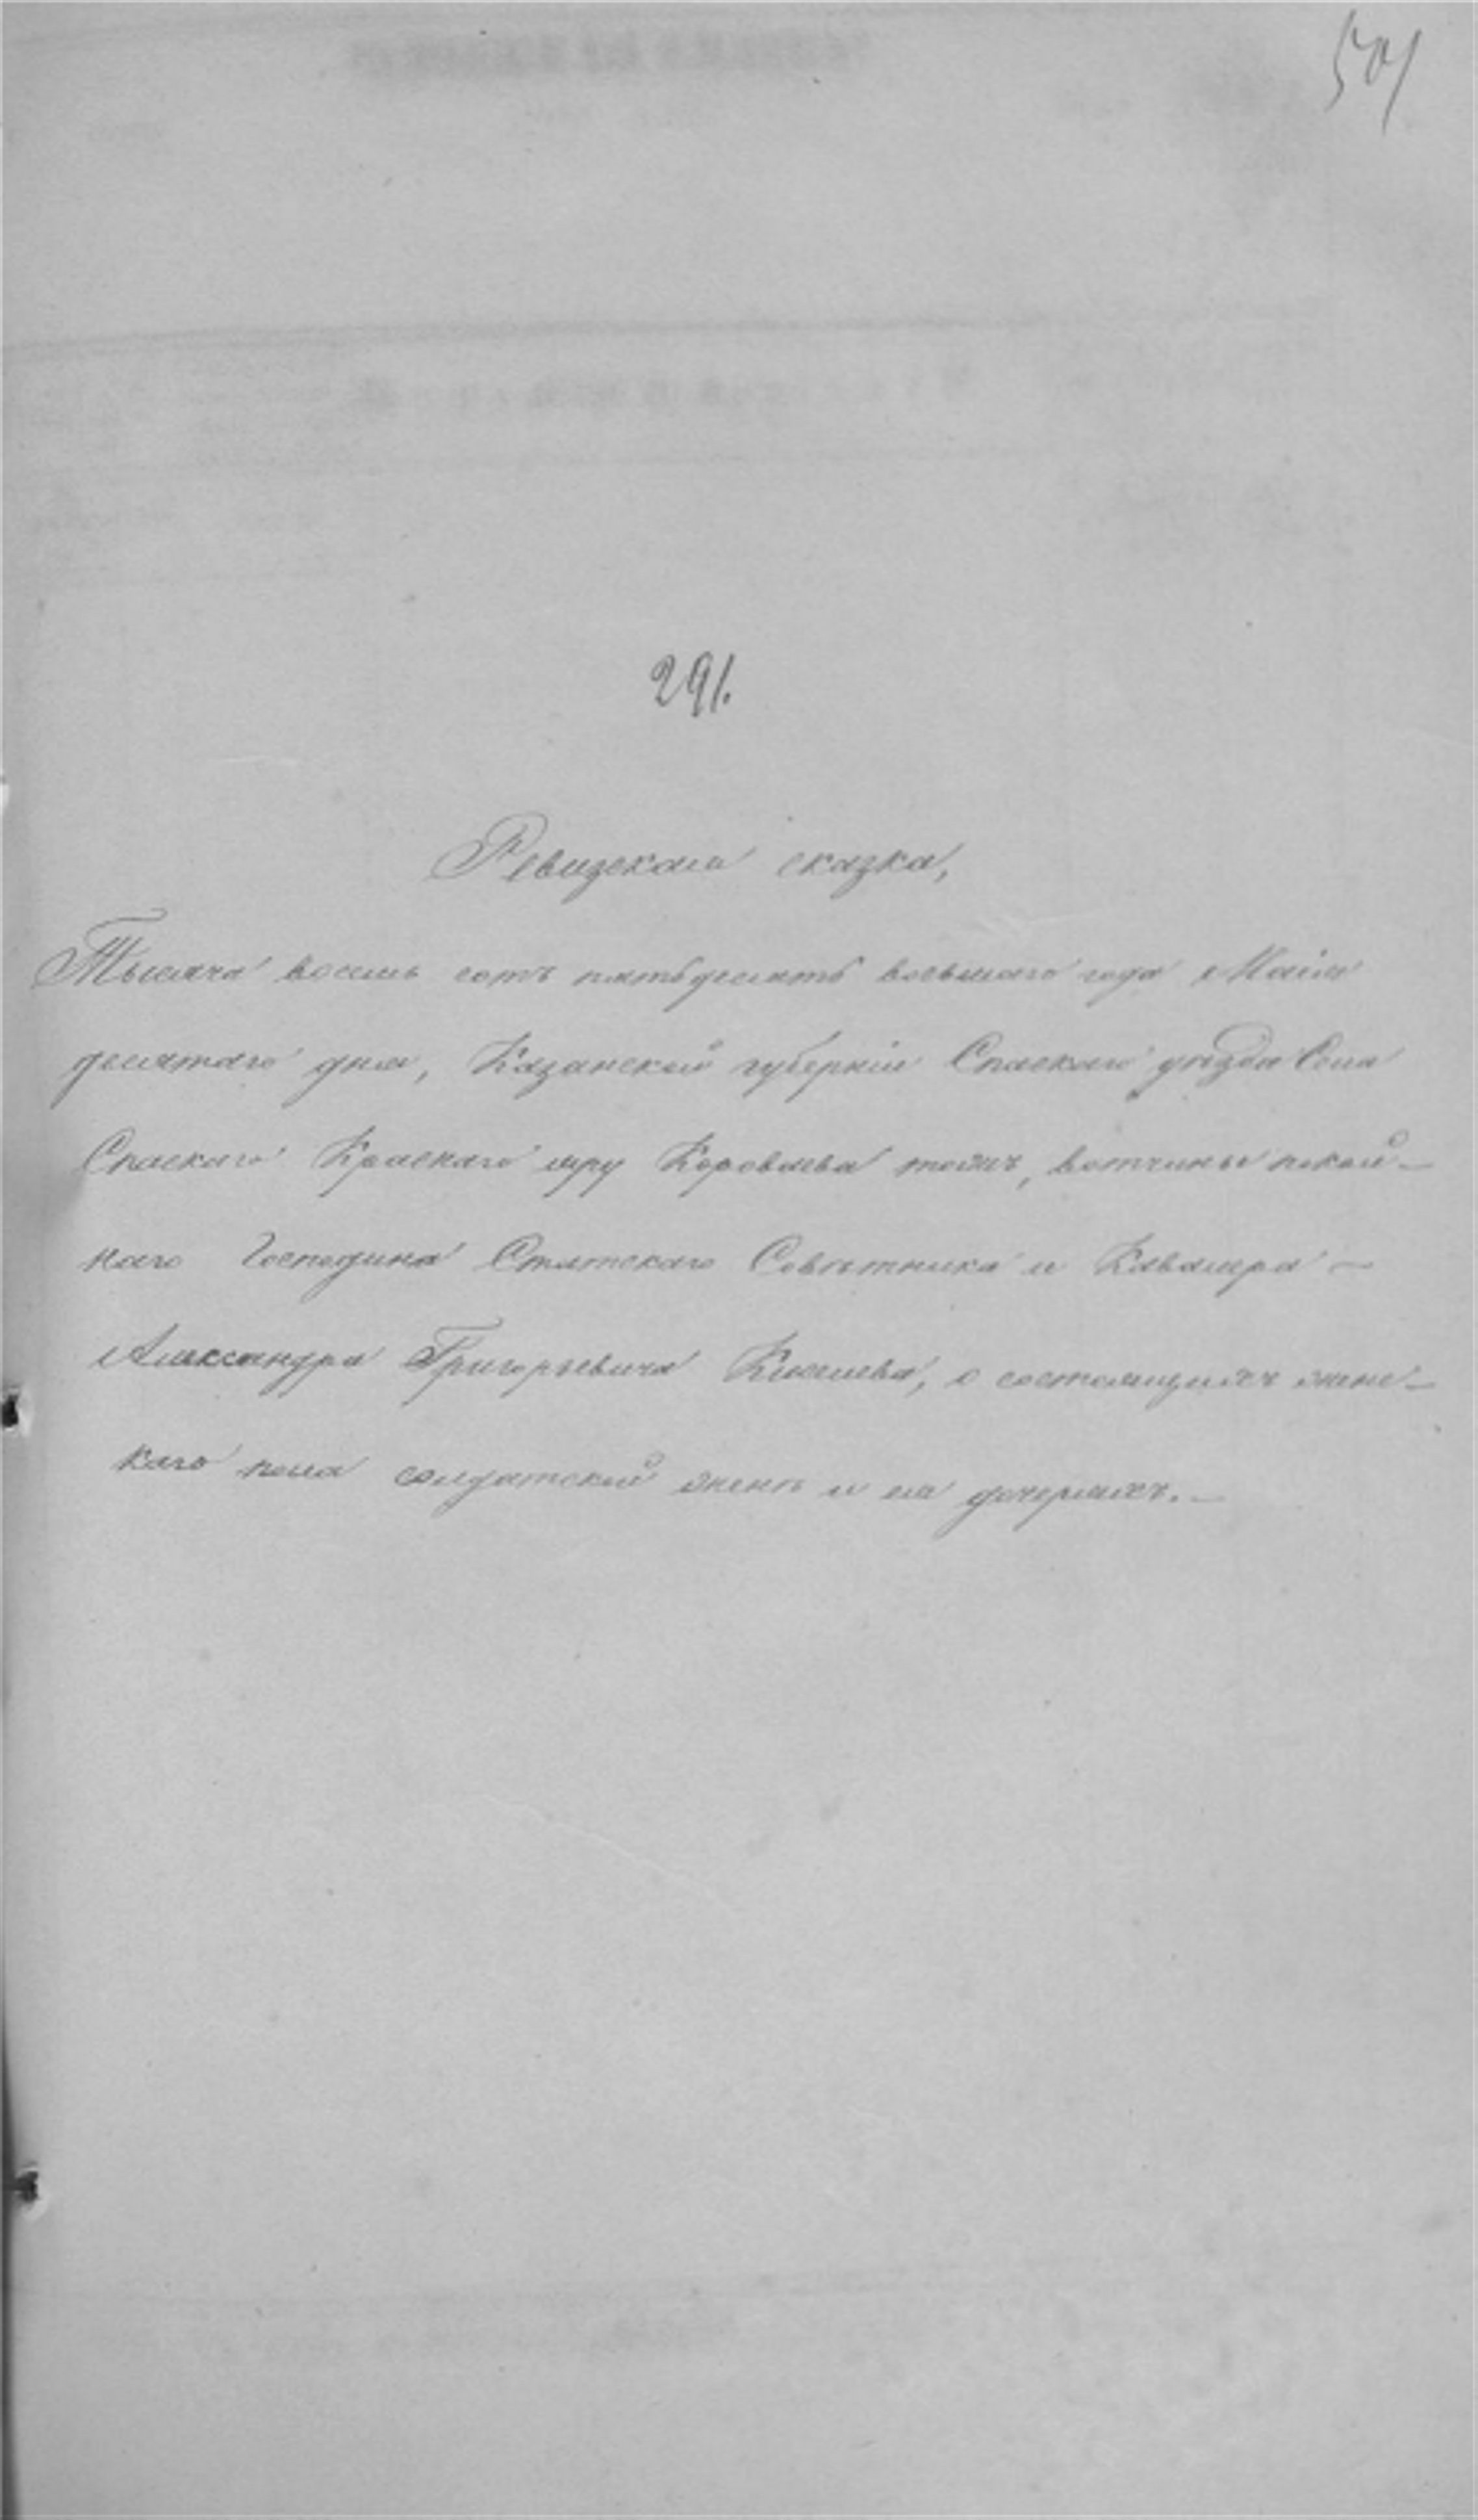 501
291.
Ревизская сказка,
Тысяча восемь сотъ пятьдесятъ восьмаго года Маія
десятаго дня, Казанской губерніи Спаскаго уѣзда Села
Спаскаго тожъ, вотчины покой-
наго Господина Статскаго Совѣтника и Кавалера –
Александра Григорьевича Киселева, о состоящихъ женс-
каго пола солдатской женѣ и ея дочеряхъ. –